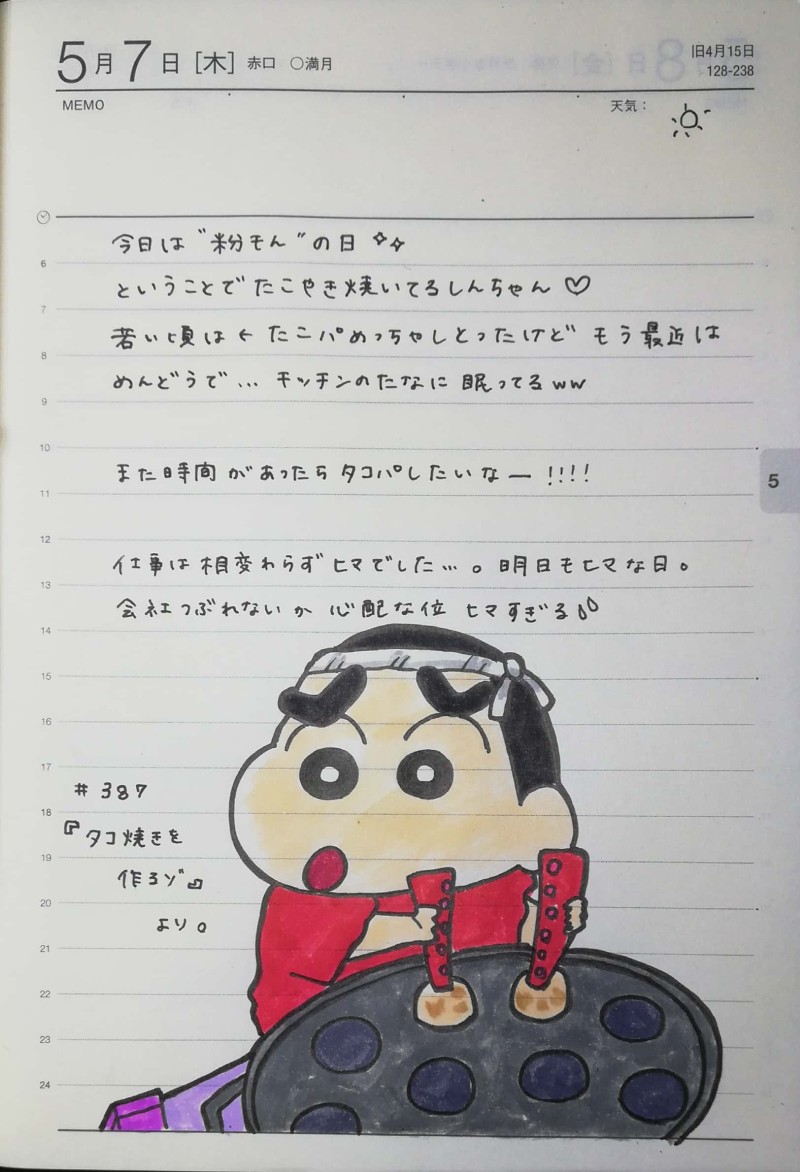 5月7日[木] 赤口 ○満月
旧4月15日
128-238
MEMO
天気：
今日は“粉もん”の日
ということで たこやき焼いてるしんちゃん♡
若い頃は← たこパめっちゃしとったけど もう最近は
めんどうで… キッチンのたなに 眠ってるww
また時間があったら タコパしたいなー!!!!
仕事は相変わらずヒマでした…。明日もヒマな日。
会社つぶれないか 心配な位 ヒマすぎる
6
7
8
9
10
11
12
13
14
15
16
17
18
19
20
21
22
23
24
5
#387
『タコ焼きを
作るゾ』
より。